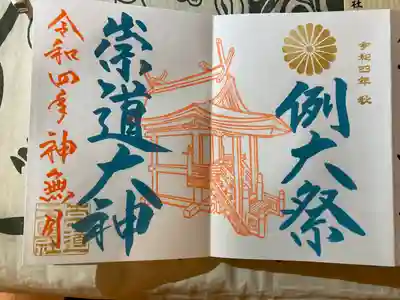 令和四年 秋
例大祭
崇道大神
令和四年 神無月
崇道神社
社